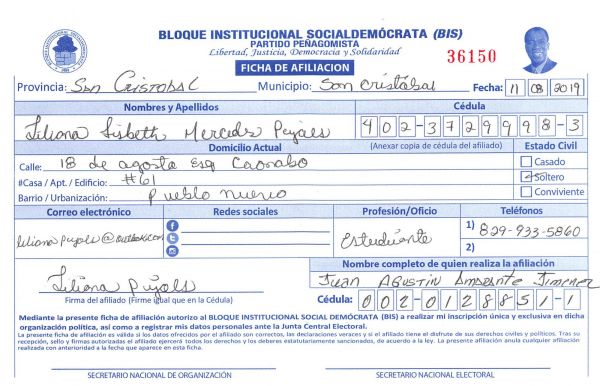 BLOQUE INSTITUCIONAL SOCIALDEMÓCRATA (BIS)
PARTIDO PEÑAGOMISTA
Libertad, Justicia, Democracia y Solidaridad
FICHA DE AFILIACION
36150
Provincia: San Cristobal Municipio: San Cristóbal Fecha: 11 08 2019
Nombres y Apellidos Cédula
Liliana Lisbeth Mercedes Pujols 402-3729998-3
Domicilio Actual (Anexar copia de cédula del afiliado) Estado Civil
Calle: 18 de agosto esq Caonabo Casado
#Casa / Apt. / Edificio: #61 Soltero
Barrio / Urbanización: Pueblo nuevo Conviviente
Correo electrónico Redes sociales Profesión/Oficio Teléfonos
lilianapujols@outlook.com Estudiante 1) 829-933-5860
2)
Nombre completo de quien realiza la afiliación
Liliana Pujols Juan Agustin Jimenez
Firma del afiliado (Firme igual que en la Cédula) Cédula: 002-0128851-1
Mediante la presente ficha de afiliación autorizo al BLOQUE INSTITUCIONAL SOCIAL DEMÓCRATA (BIS) a realizar mi inscripción única y exclusiva en dicha
organización política, así como a registrar mis datos personales ante la Junta Central Electoral.
La presente ficha de afiliación es válida si los datos ofrecidos por el afiliado son correctos, las declaraciones veraces y si el afiliado tiene el disfrute de sus derechos civiles y políticos. Tras su
recepción, sello y firmas autorizadas el afiliado ejercerá todos los derechos y los deberes estatutariamente sancionados, de acuerdo a la ley. Esta afiliación anula cualquiera
realizada con anterioridad a la fecha que aparece en esta ficha.
SECRETARIO NACIONAL DE ORGANIZACIÓN SECRETARIO NACIONAL ELECTORAL